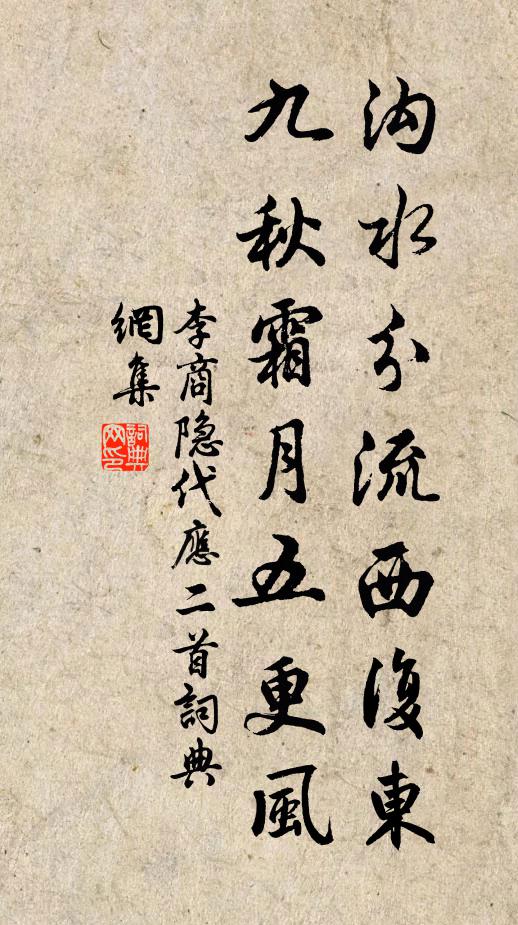 沟水分流西復東
九秋霜月五更風
李商隐代應二首詞典
網集
詞典
网印